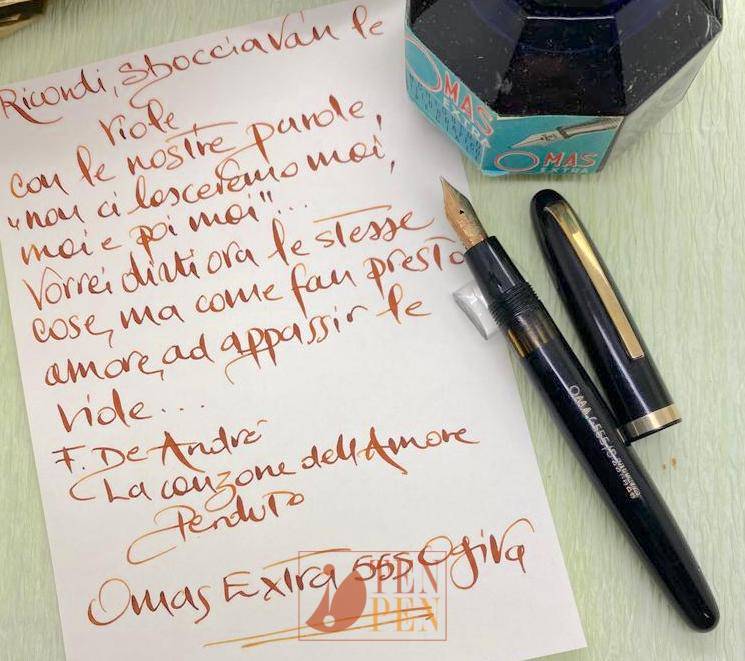 Ricordi, sbocciavan le
viole
con le nostre parole,
"non ci lasceremo mai,
mai e poi mai"...
Vorrei dirti ora le stesse
cose, ma come fan presto
amore, ad appassir le
viole...
F. De Andrè
La canzone dell'Amore
Perduto
Omas Extra 555 Ogiva
OMAS
EXTRA
OMAS
EXTRA
PEN
PEN